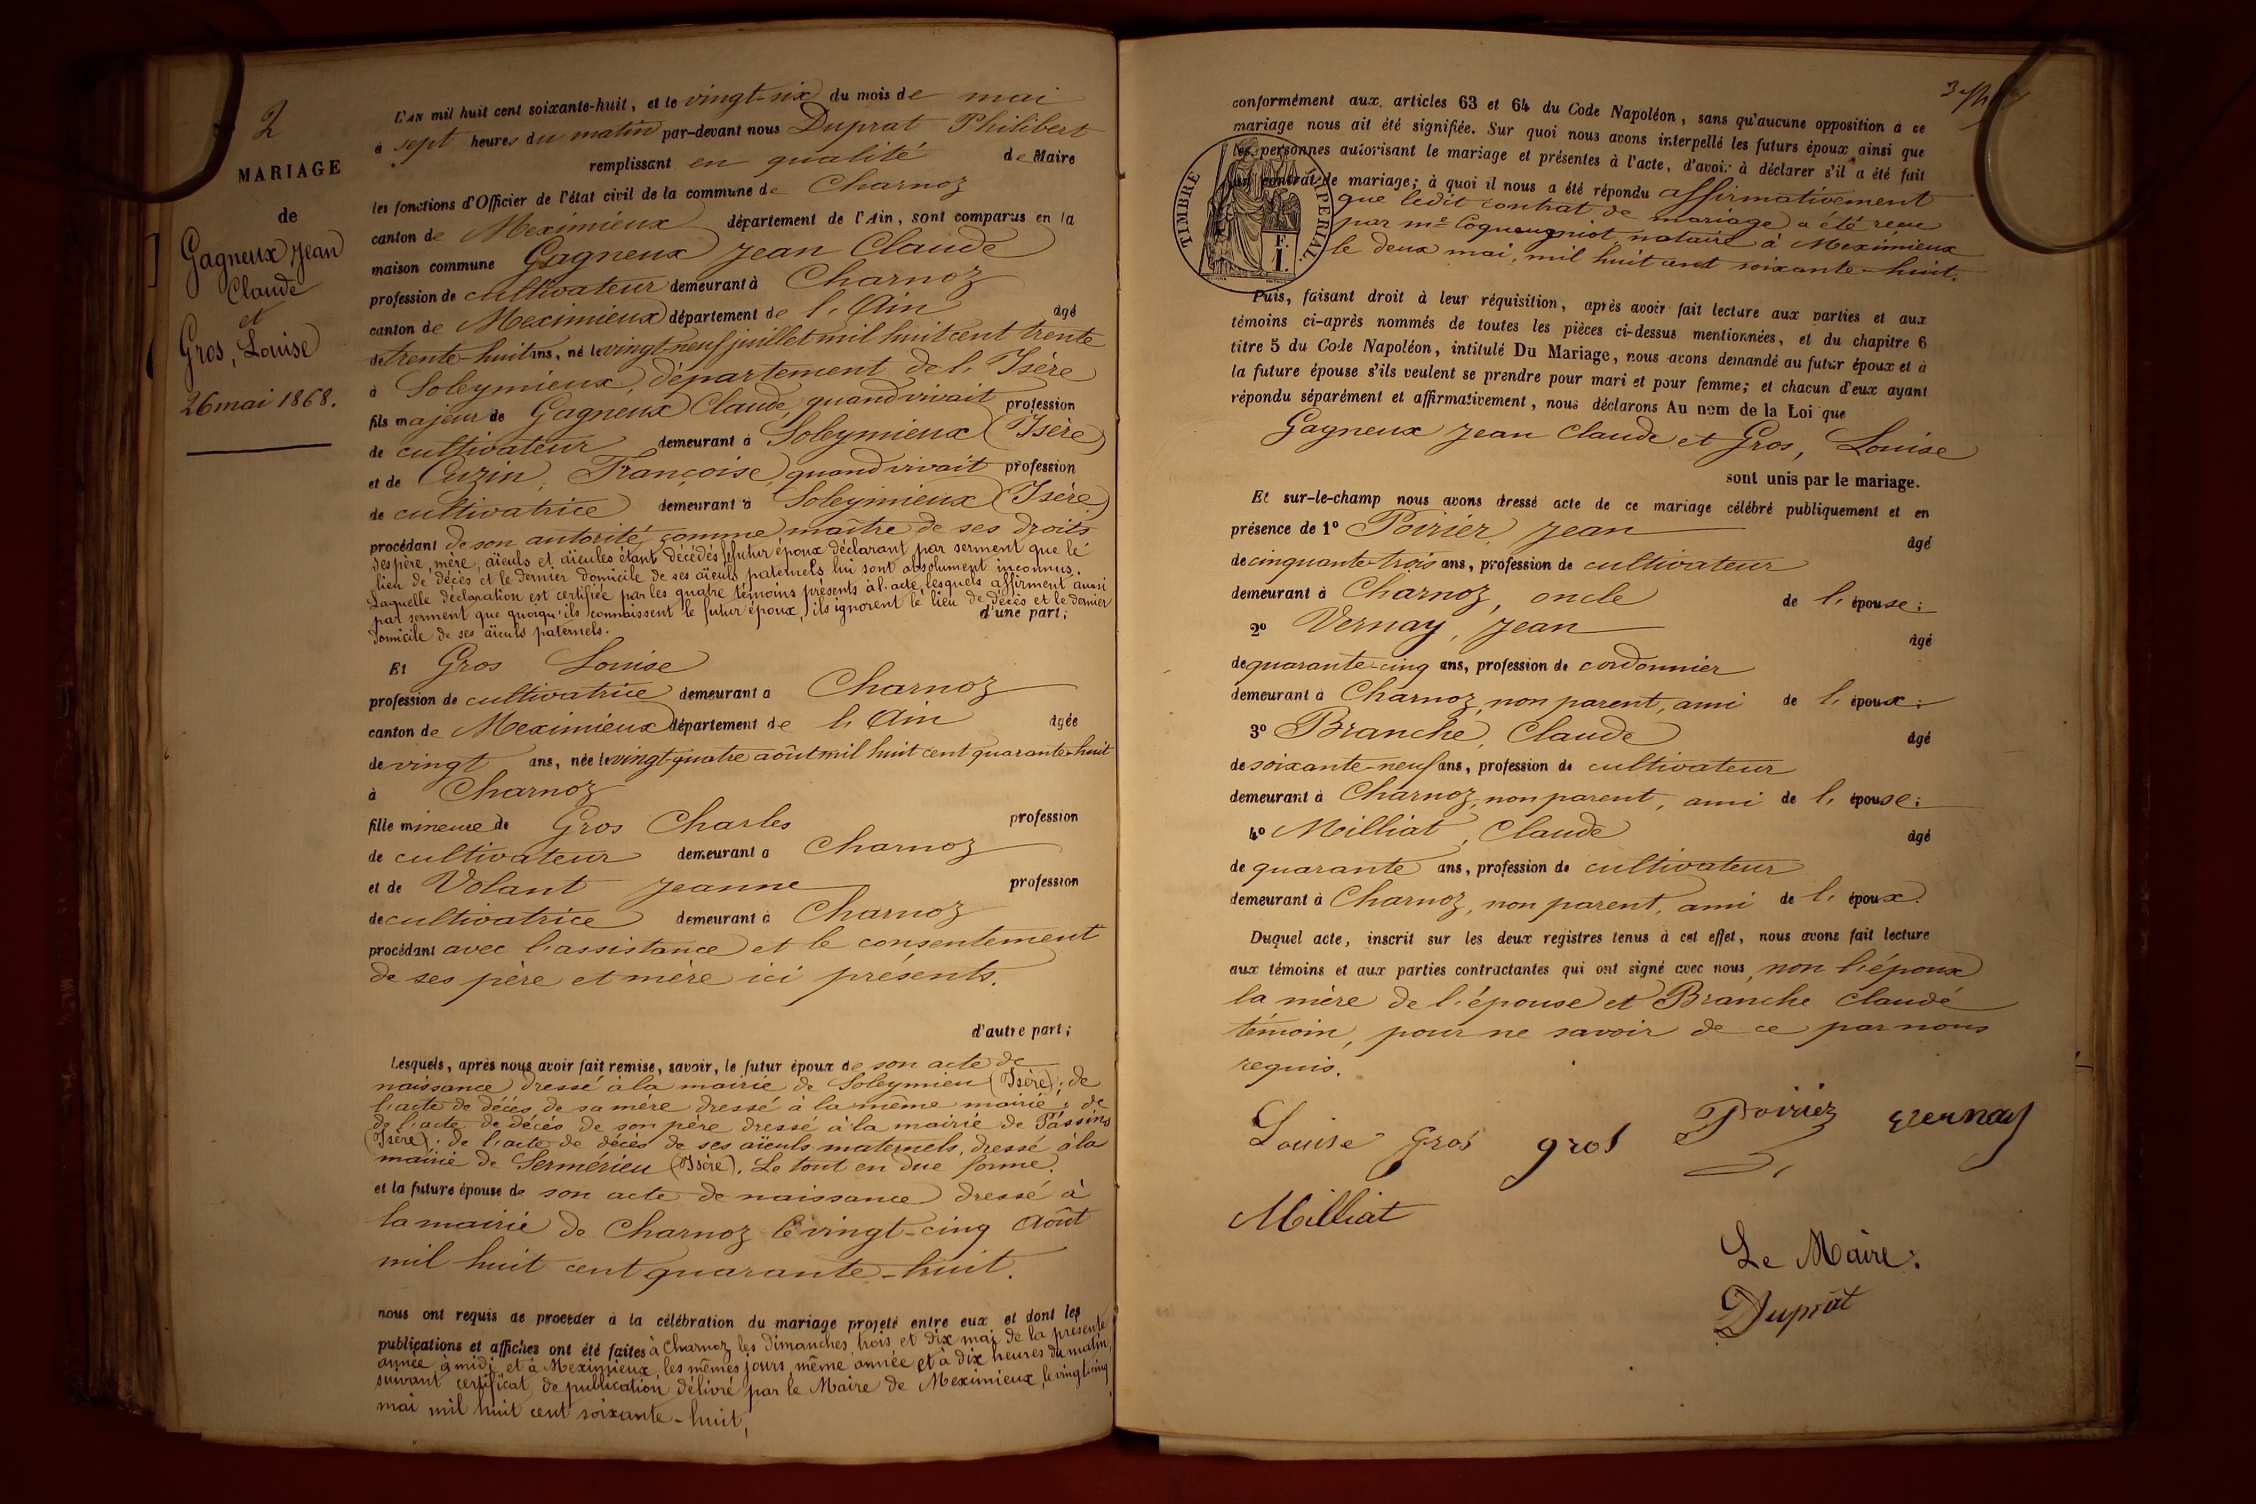 2
MARIAGE
de
Gagneux Jean
Claude
et
Gros, Louise
26 mai 1868.
L'AN mil huit cent soixante-huit, et le vingt-six du mois de mai
à sept heures du matin par-devant nous Duprat Philibert
remplissant en qualité de Maire
les fonctions d'Officier de l'état civil de la commune de Charnoz
canton de Meximieux département de l'Ain, sont comparus en la
maison commune Gagneux Jean Claude
profession de cultivateur demeurant à Charnoz
canton de Meximieux département de l'Ain âgé
de trente-huit ans, né le vingt-neuf juillet mil huit cent trente
à Soleymieux, département de l'Isère
fils majeur de Gagneux Claude, quand vivait profession
de cultivateur demeurant à Soleymieux (Isère)
et de Cuzin, Françoise, quand vivait profession
de cultivatrice demeurant à Soleymieux (Isère)
procédant de son autorité, comme maître de ses droits
ses père, mère, aïeuls et aïeules étant décédés, futur époux déclarant par serment que le
lieu de décès et le dernier domicile de ses aïeuls paternels lui sont absolument inconnus.
Laquelle déclaration est certifiée par les quatre témoins présents à l'acte, lesquels affirment aussi
par serment que quoiqu'ils connaissent le futur époux, ils ignorent le lieu de décès et le dernier
domicile de ses aïeuls paternels. d'une part;
Et Gros Louise
profession de cultivatrice demeurant à Charnoz
canton de Meximieux département de l'Ain âgée
de vingt ans, née le vingt-quatre août mil huit cent quarante-huit
à Charnoz
fille mineure de Gros Charles profession
de cultivateur demeurant à Charnoz
et de Volant Jeanne profession
de cultivatrice demeurant à Charnoz
procédant avec l'assistance et le consentement
de ses père et mère ici présents.
d'autre part;
Lesquels, après nous avoir fait remise, savoir, le futur époux de son acte de
naissance dressé à la mairie de Soleymieu (Isère); de
l'acte de décès de sa mère dressé à la même mairie; de
de l'acte de décès de son père dressé à la mairie de Passins
(Isère); de l'acte de décès de ses aïeuls maternels, dressé à la
mairie de Sermérieu (Isère). Le tout en due forme.
et la future épouse de son acte de naissance dressé à
la mairie de Charnoz le vingt-cinq Août
mil huit cent quarante-huit.
nous ont requis de procéder à la célébration du mariage projeté entre eux et dont les
publications et affiches ont été faites à Charnoz les dimanches trois et dix mai de la présente
année à midi et à Meximieux, les mêmes jours, même année et à dix heures du matin,
suivant certificat de publication délivré par le Maire de Meximieux, le vingt-cinq
mai mil huit cent soixante-huit,
conformément aux articles 63 et 64 du Code Napoléon, sans qu'aucune opposition à ce
mariage nous ait été signifiée. Sur quoi nous avons interpellé les futurs époux ainsi que
les personnes autorisant le mariage et présentes à l'acte, d'avoir à déclarer s'il a été fait
un contrat de mariage; à quoi il nous a été répondu affirmativement
que ledit contrat de mariage a été reçu
par me Coqueugniot, notaire à Meximieux
le deux mai, mil huit cent soixante-huit.
TIMBRE IMPÉRIAL.
F.
I.
Puis, faisant droit à leur réquisition, après avoir fait lecture aux parties et aux
témoins ci-après nommés de toutes les pièces ci-dessus mentionnées, et du chapitre 6
titre 5 du Code Napoléon, intitulé Du Mariage, nous avons demandé au futur époux et à
la future épouse s'ils veulent se prendre pour mari et pour femme; et chacun d'eux ayant
répondu séparément et affirmativement, nous déclarons Au nom de la Loi que
Gagneux Jean Claude et Gros, Louise
sont unis par le mariage.
Et sur-le-champ nous avons dressé acte de ce mariage célébré publiquement et en
présence de 1º Poirier Jean âgé
de cinquante-trois ans, profession de cultivateur
demeurant à Charnoz, oncle de l'épouse;
2º Vernay, Jean âgé
de quarante-cinq ans, profession de cordonnier
demeurant à Charnoz, non parent, ami de l'époux;
3º Branche, Claude âgé
de soixante-neuf ans, profession de cultivateur
demeurant à Charnoz, non parent, ami de l'épouse;
4º Milliat, Claude âgé
de quarante ans, profession de cultivateur
demeurant à Charnoz, non parent, ami de l'époux.
Duquel acte, inscrit sur les deux registres tenus à cet effet, nous avons fait lecture
aux témoins et aux parties contractantes qui ont signé avec nous, non l'époux
la mère de l'épouse et Branche Claude
témoin, pour ne savoir de ce par nous
requis.
Louise Gros gros Poirier Vernay
Milliat
Le Maire:
Duprat